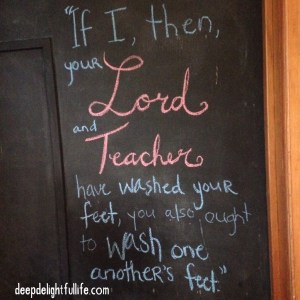 "If I, then,
your Lord
and Teacher
have washed your
feet, you also ought
to wash one
another's feet."
deepdelightfullife.com